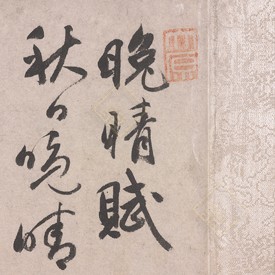 晚晴賦
秋日晚晴